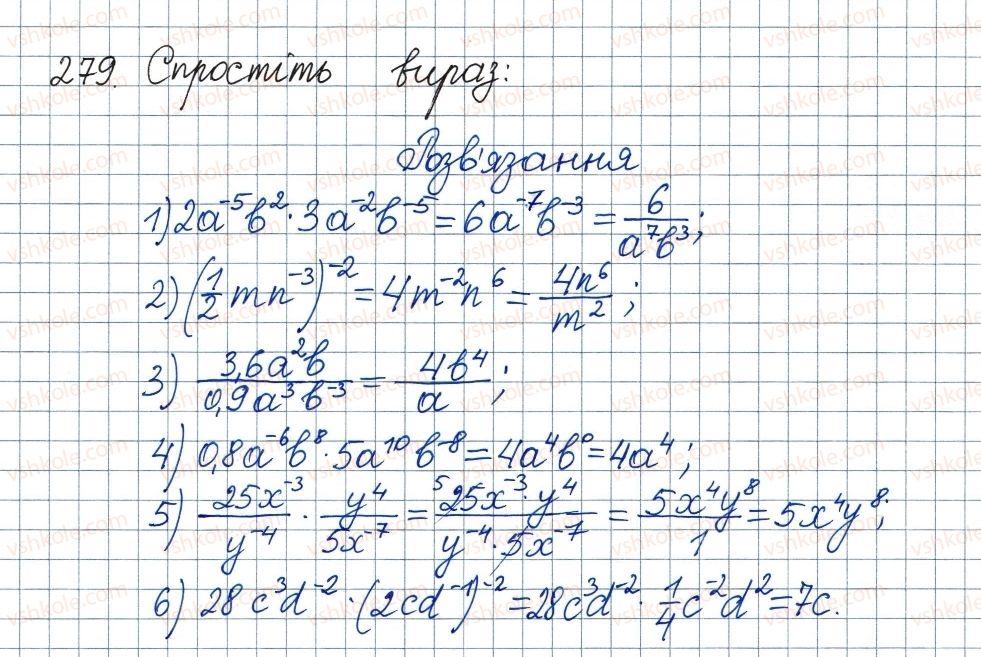 279. Спростіть вираз:
Розв'язання
1) 2a⁻⁵b²·3a⁻²b⁻⁵=6a⁻⁷b⁻³=6/(a⁷b³);
2) (1/2 mn⁻³)⁻²=4m⁻²n⁶=4n⁶/m²;
3) 3,6a²b/(0,9a³b⁻³)=4b⁴/a;
4) 0,8a⁻⁶b⁸·5a¹⁰b⁻⁸=4a⁴b⁰=4a⁴;
5) 25x⁻³/y⁻⁴·y⁴/(5x⁻⁷)=⁵25x⁻³·y⁴/(y⁻⁴·5x⁻⁷)=5x⁴y⁸/1=5x⁴y⁸;
6) 28c³d⁻²·(2cd⁻¹)⁻²=28c³d⁻²·1/4 c⁻²d²=7c.